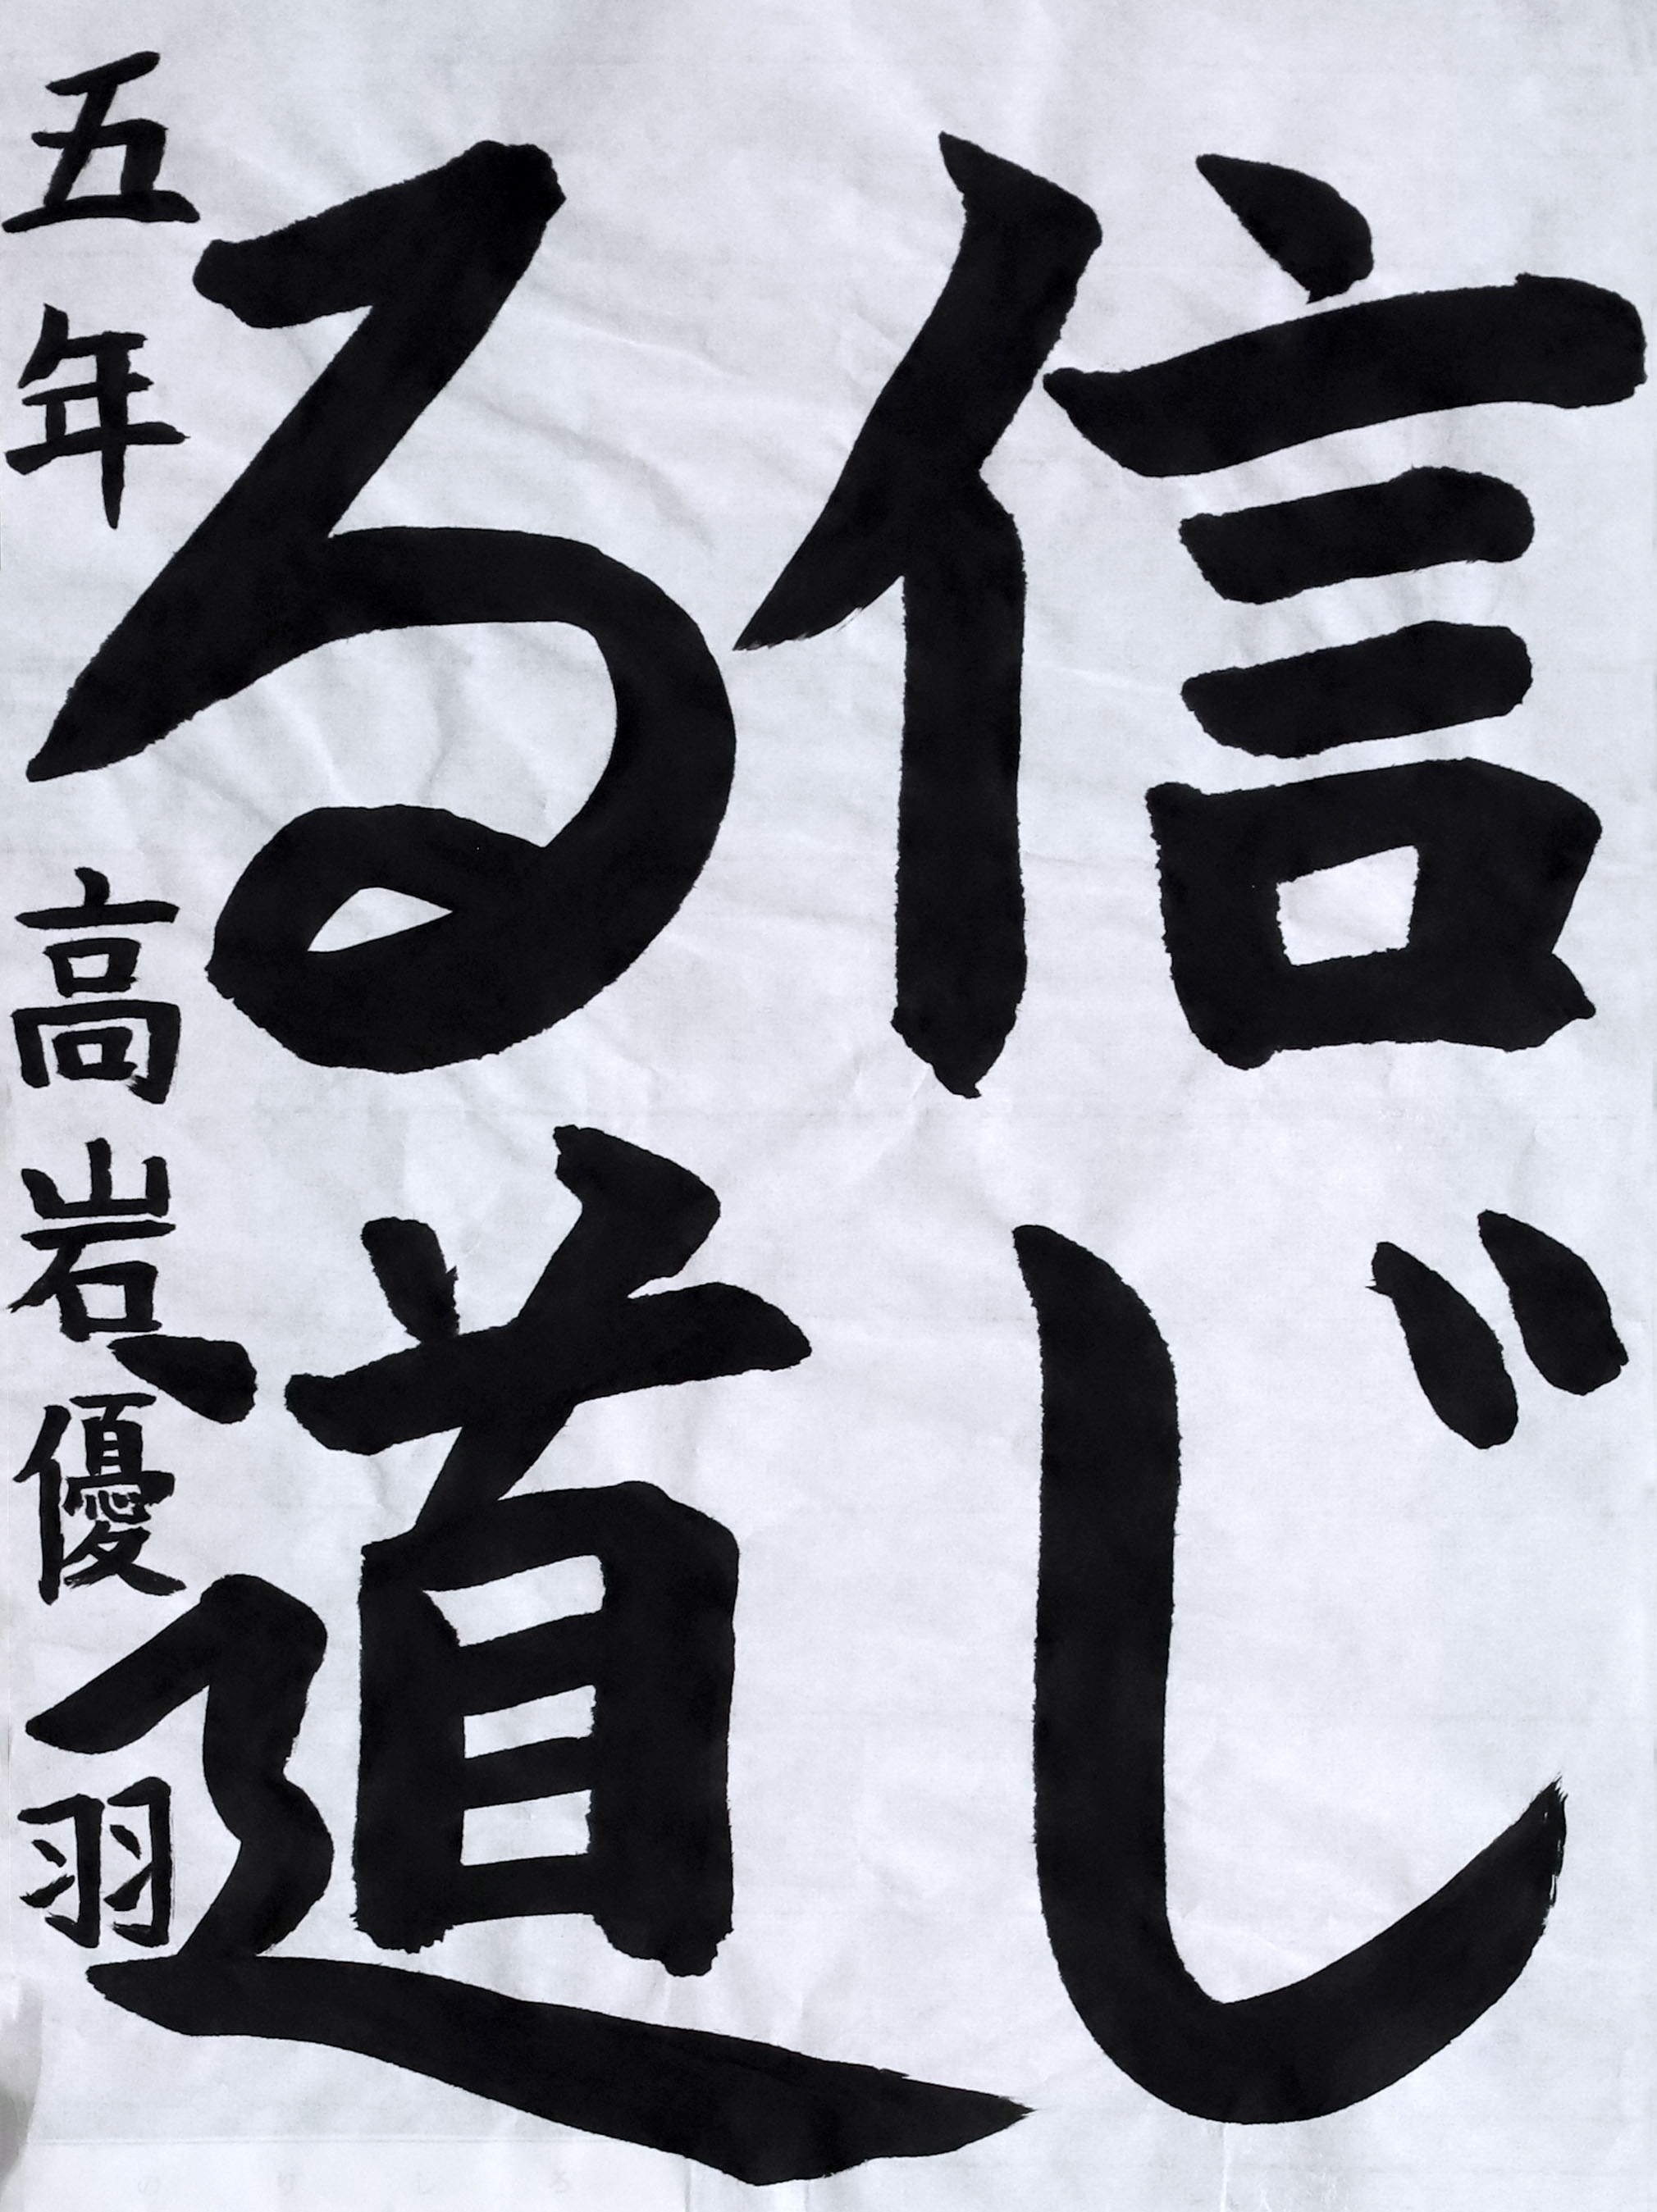 信じ
る道
五年 高岩優羽